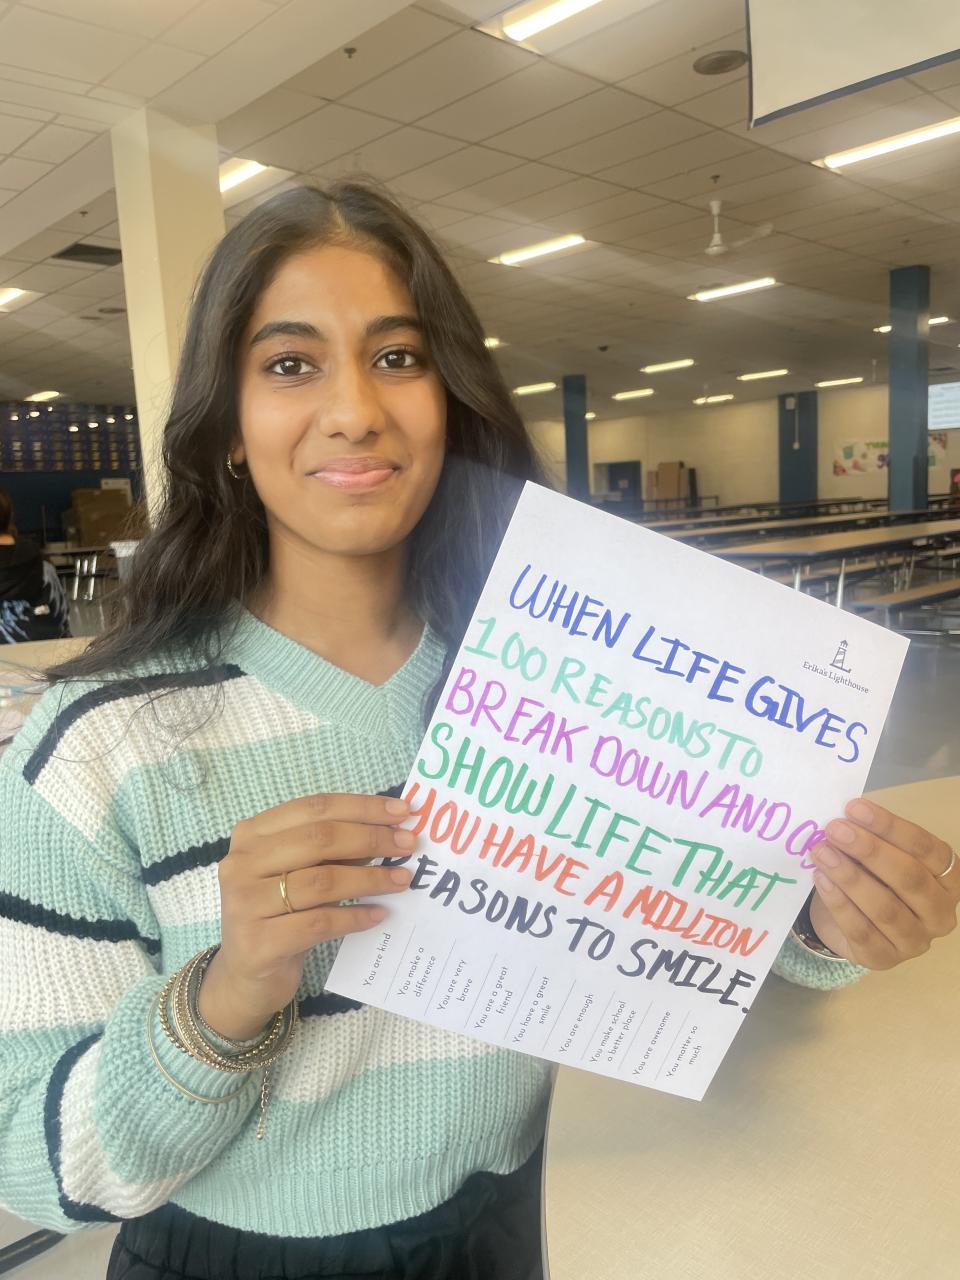 WHEN LIFE GIVES
Erika's Lighthouse
100 REASONS TO
BREAK DOWN AND
SHOW LIFE THAT
YOU HAVE A MILLION
REASONS TO SMILE.
You are kind
You make a
difference
You are very
brave
You are a great
friend
You have a great
smile
You are enough
You make school
a better place
You are awesome
You matter so
much